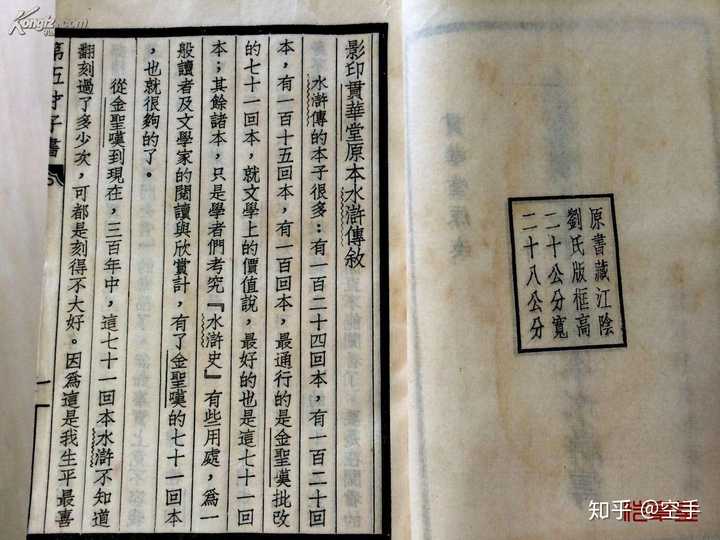 原書藏江陰
劉氏版框高
二十公分寬
二十八公分
影印貫華堂原本水滸傳敘
水滸傳的本子很多:有一百二十四回本,有一百二十回
本,有一百十五回本,有一百回本,最通行的是金聖嘆批改
的七十一回本,就文學上的價值說,最好的也是這七十一回
本;其餘諸本,只是學者們考究『水滸史』有些用處,爲一
般讀者及文學家的閱讀與欣賞計,有了金聖嘆的七十一回本
,也就很夠的了。
從金聖嘆到現在,三百年中,這七十一回本水滸不知道
翻刻過了多少次,可都是刻得不大好。因爲這是我生平最喜
第五才子書
一
Kongfz.com
知乎 @空手